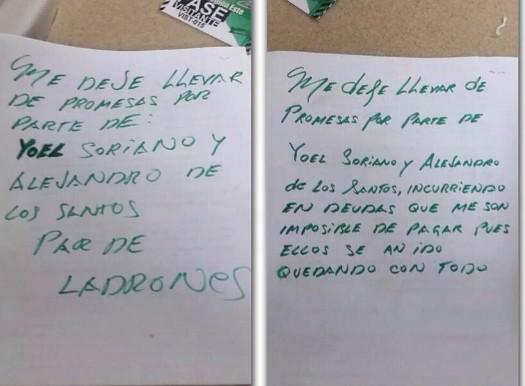 PASE
VISITANTE
VIST-015
ME DEJE LLEVAR
DE PROMESAS POR
PARTE DE:
YOEL SORIANO Y
ALEJANDRO DE
LOS SANTOS
PAR DE
LADRONES
Me deje LLevar de
Promesas por Parte de
Yoel Soriano y Alejandro
de Los Santos, INCURRIENDO
EN DEUDAS QUE ME SON
IMPOSIBLE DE PAGAR PUES
ELLOS SE AN IDO
QUEDANDO CON TODO